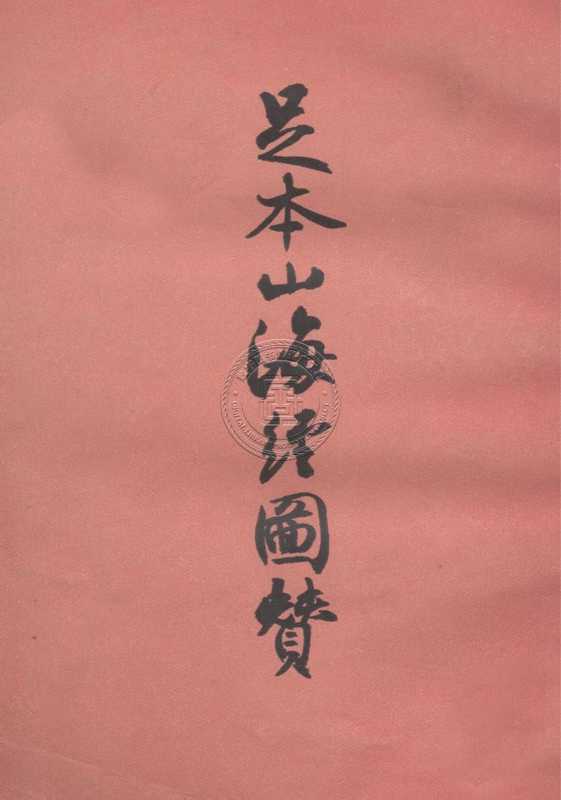 足本山海经圖贊